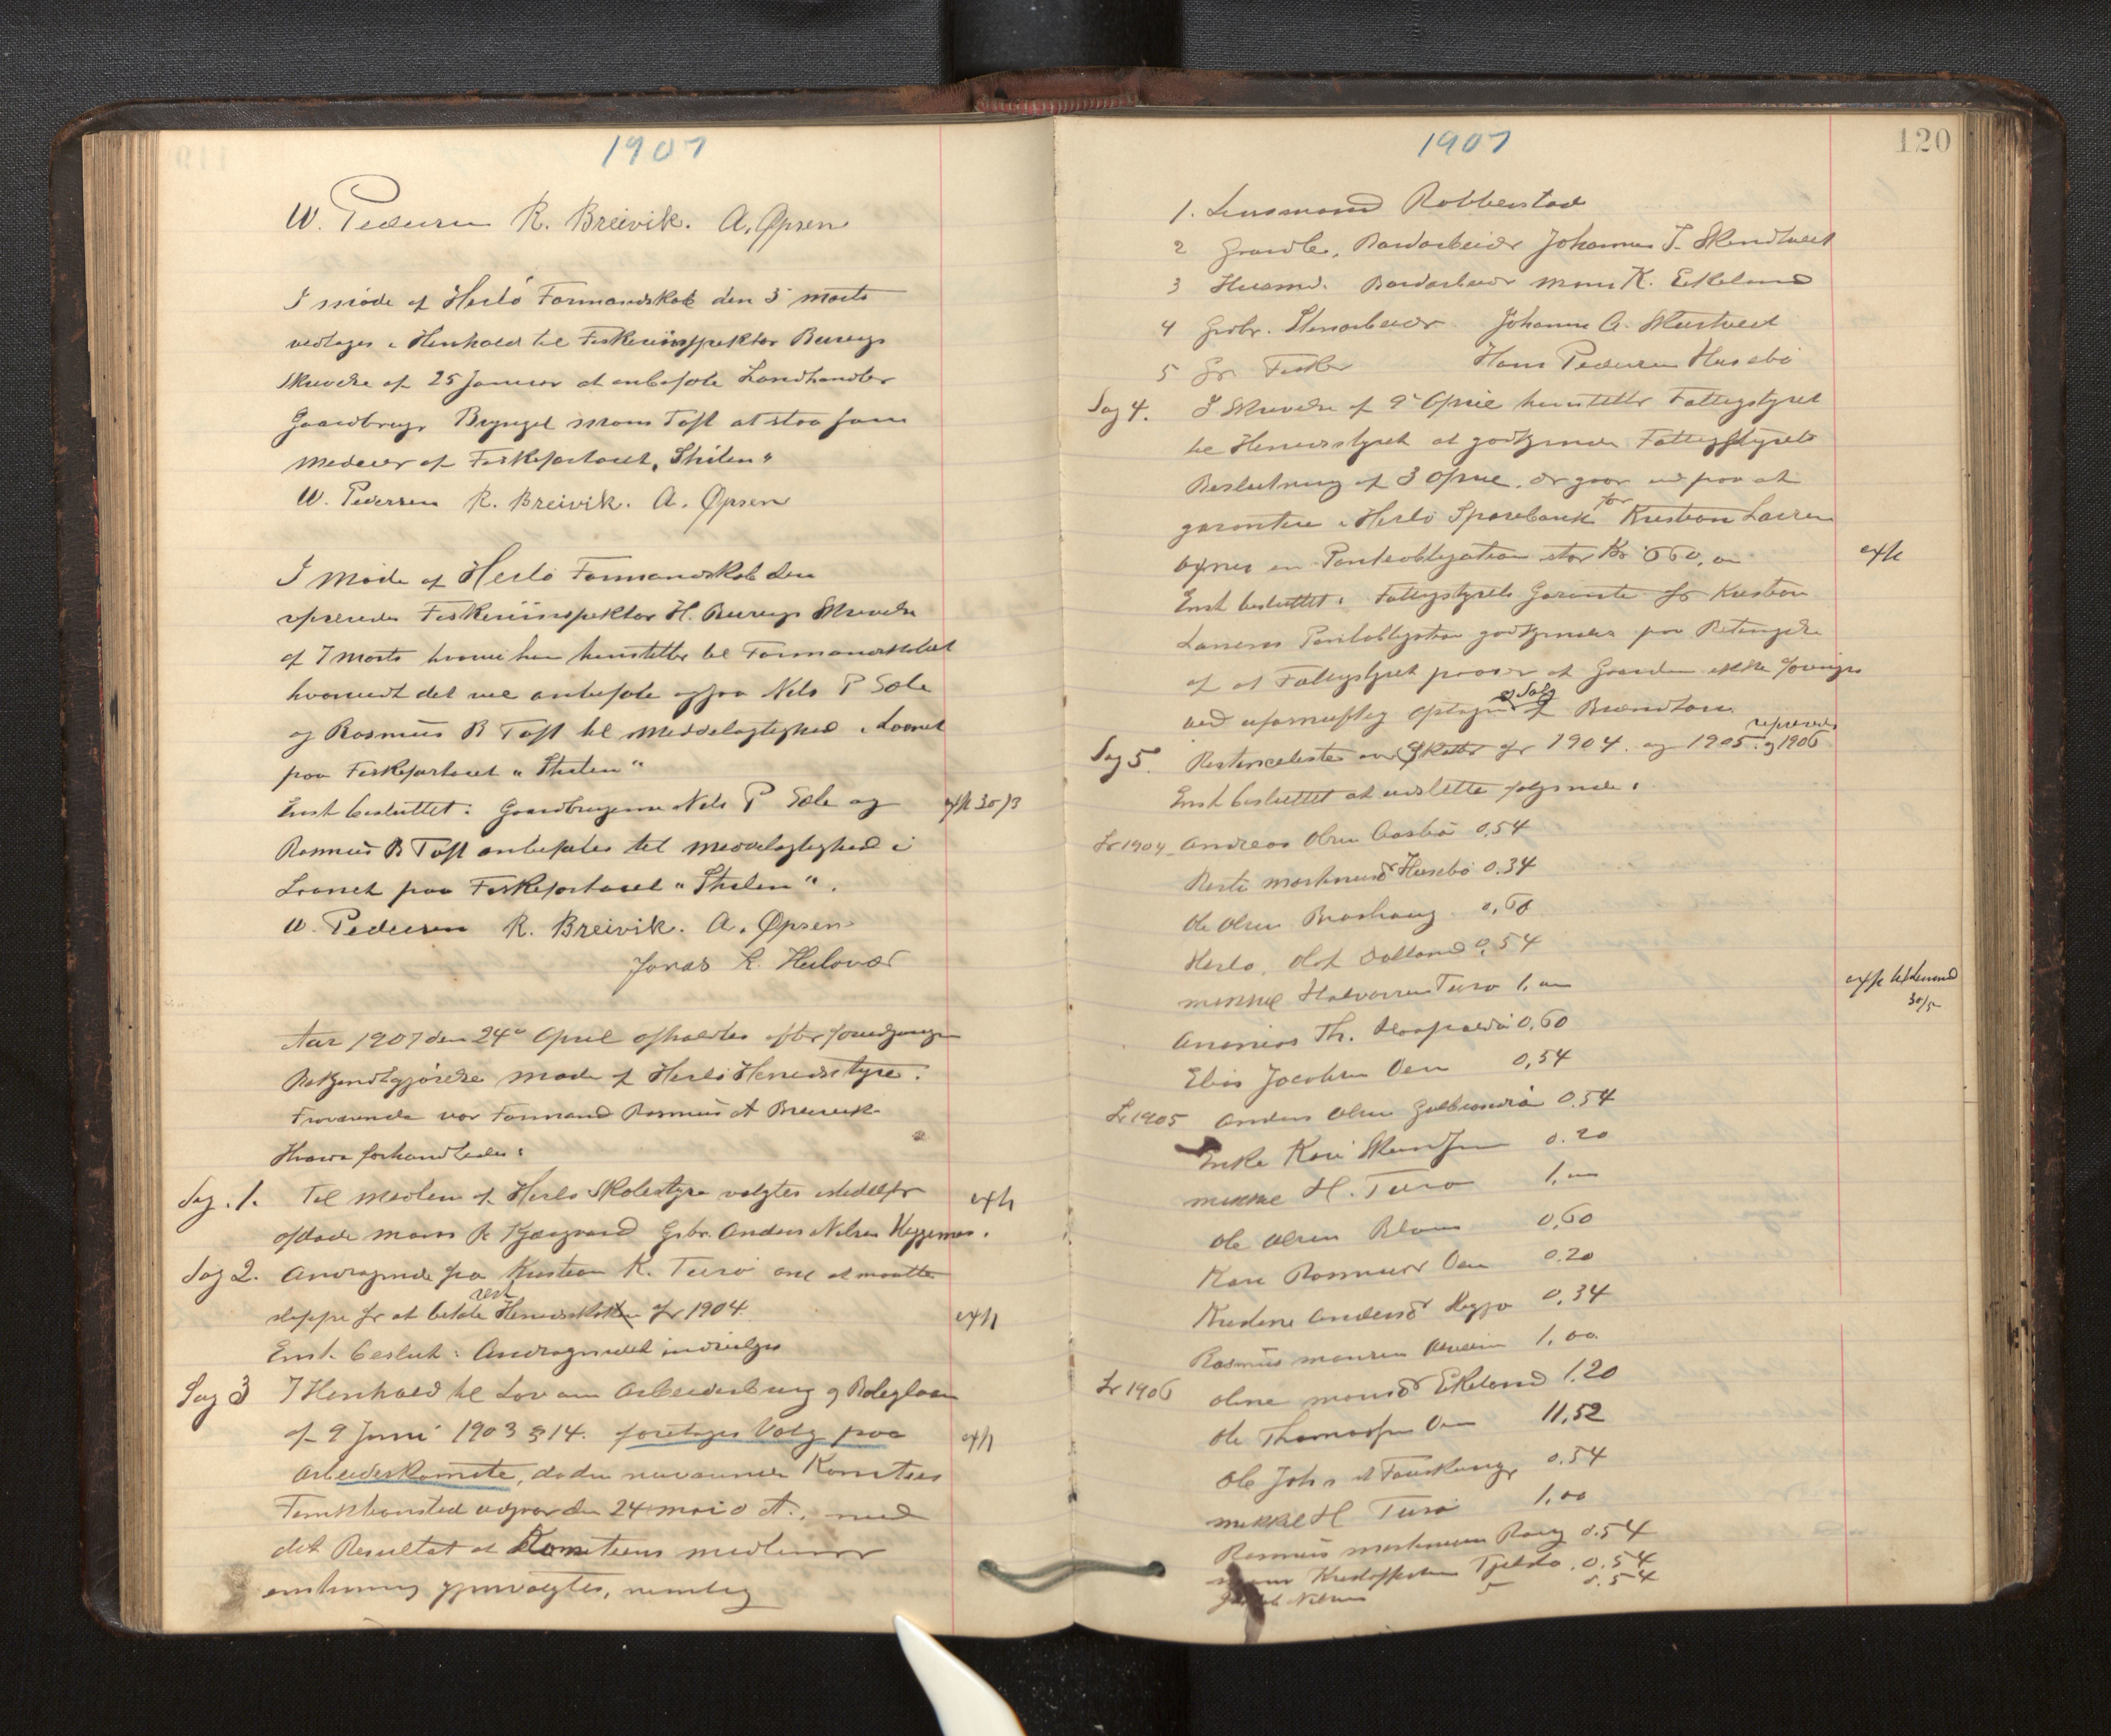 1907
W. Pedersen R. Breivik. A. Øpsen
I møde af Herlö Formandskab den 5 marts
vedtoges i Henhold til Fiskeriinspektør
Skrivelse af 25 Januar at anbefale Landhandler
Gaardbruger Brynjel Mons Toft at staa som
Medeier af Fiskefartøiet "
W. Pedersen R. Breivik. A. Øpsen
I Møde af Herlö Formandskab den
refereredes Fiskeriinspektør H. Skrivelse
af 7 Marts hvori han henstiller til Formandskabet
hvorvidt det vil anbefale ogsaa Nils P Sæle
og Rasmus R Toft til Meddelagtighed i Laanet
paa Fiskefartøiet " "
Enst besluttet: Gaardbrugerne Nils P Sæle og
exp 30/3
Rasmus R Toft anbefales til meddelagtighed i
Laanet paa Fiskefartøiet " ".
W. Pedersen R. Breivik. A. Øpsen
Jonas R. Herlovær
Aar 1907 den 24de April afholdtes efter foregangen
Bekjendtgjørelse møde af Herlö Herredsstyre.
Fraværende var Formand Rasmus A Breivik
Hvor forhandledes:
Sag. 1. Til Medlem af Herlö Skolestyre valgtes istedetfor
exp
afdøde Mons R Kjærgaard Gbr. Anders Nilsen Heggernes.
Sag 2. Andragende fra Kristian K. Turö om at maatte
slippe for at betale rest Herredsskatten for 1904
exp
Enst. beslut: Andragendet indvilges
Sag 3 I Henhold til Lov om Arbeiderbrug og Boliglaan
af 9 Juni 1903 § 14. foretoges Valg paa
exp
Arbeiderkomite, da den nuværende Komites
Funktionstid udgaar den 24 mai d A., med
det Resultat at Komiteens medlemmer
enstemmig gjenvalgtes, nemlig
1907
120
1. Lensmand Robberstad
2 Gaardbr. Johannes J. Skindtveit
3 Husmd. Mons K. Eikeland
4 Grbr. Stenarbeider Johannes A. Skurtveit
5 Gr Fisker Hans Pedersen Husebö
Sag 4. I Skrivelse af 9de April henstiller Fattigstyret
til Herredsstyret at godkjende Fattigstyrets
Beslutning af 3 April, der gaar ud paa at
garantere i Herlö Sparebank for Kristian Larsen
en Panteobligation stor Kr 660,00
exp
Enst besluttet: Fattigstyrets Garanti for Kristian
Larsens Pantobligation godkjendes paa Betingelse
af at Fattigstyret paaser at Gaarden ikke forringes
ved ufornuftig Optagen og Salg af Brændtorv.
Sag 5. Restanceliste over Skatter for 1904 og 1905 og 1906 refereredes
Enst besluttet at udslette følgende:
For 1904 Andreas Olsen Aasbö 0,54
Marthinusdr Husebö 0.34
Ole Olsen 0,60
Herlo, Olaf 0,54
Mikkel Halvorsen Turö 1,00
exp
30/5
Ananias Th. 0,60
Elias Jacobsen Oen 0,54
For 1905 Anders Olsen 0.54
Enke Kari 0.20
Mikkel H. Turö 1,00
Ole Olsen 0,60
Kari Rasmusdr Oen 0.20
Andersdr 0,34
Rasmus Monsen 1,00
For 1906 Oline Monsdr Ekeland 1.20
Ole Thomassen Oen 11,52
Ole Johs 0.54
Mikkel H Turö 1,00
Rasmus 0.54
Mons Kristoffersen Tjeldstö 0.54
Nilsen 0.54